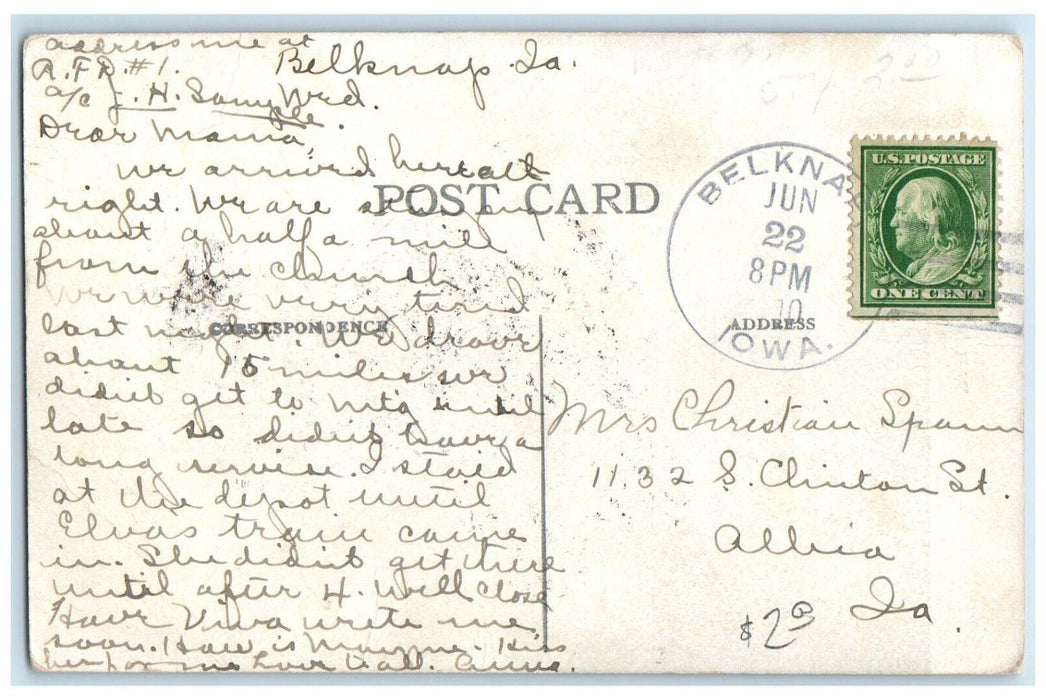 address me at
R.F.D. #1. Belknap Ia.
a/c J. H. Wed.
Dear Mama,
We arrived here alt
right. We are staying
about a half a mile
from the church.
We were very tired
last night. We drove
about 15 miles we
didn't get to mt'g until
late so didn't have a
long service. I staid
at the depot until
Elvas train came
in. She didn't get there
until after 4. Well close
Have Viva write me
soon. How is Mayme. Kiss
her for me Love to all. Anna.
POST CARD
CORRESPONDENCE
ADDRESS
BELKNA
JUN
22
8 PM
10
IOWA.
U.S. POSTAGE
ONE CENT
Mrs Christian Spann
1132 S. Clinton St.
Albia
Ia.
2.00
$2.00